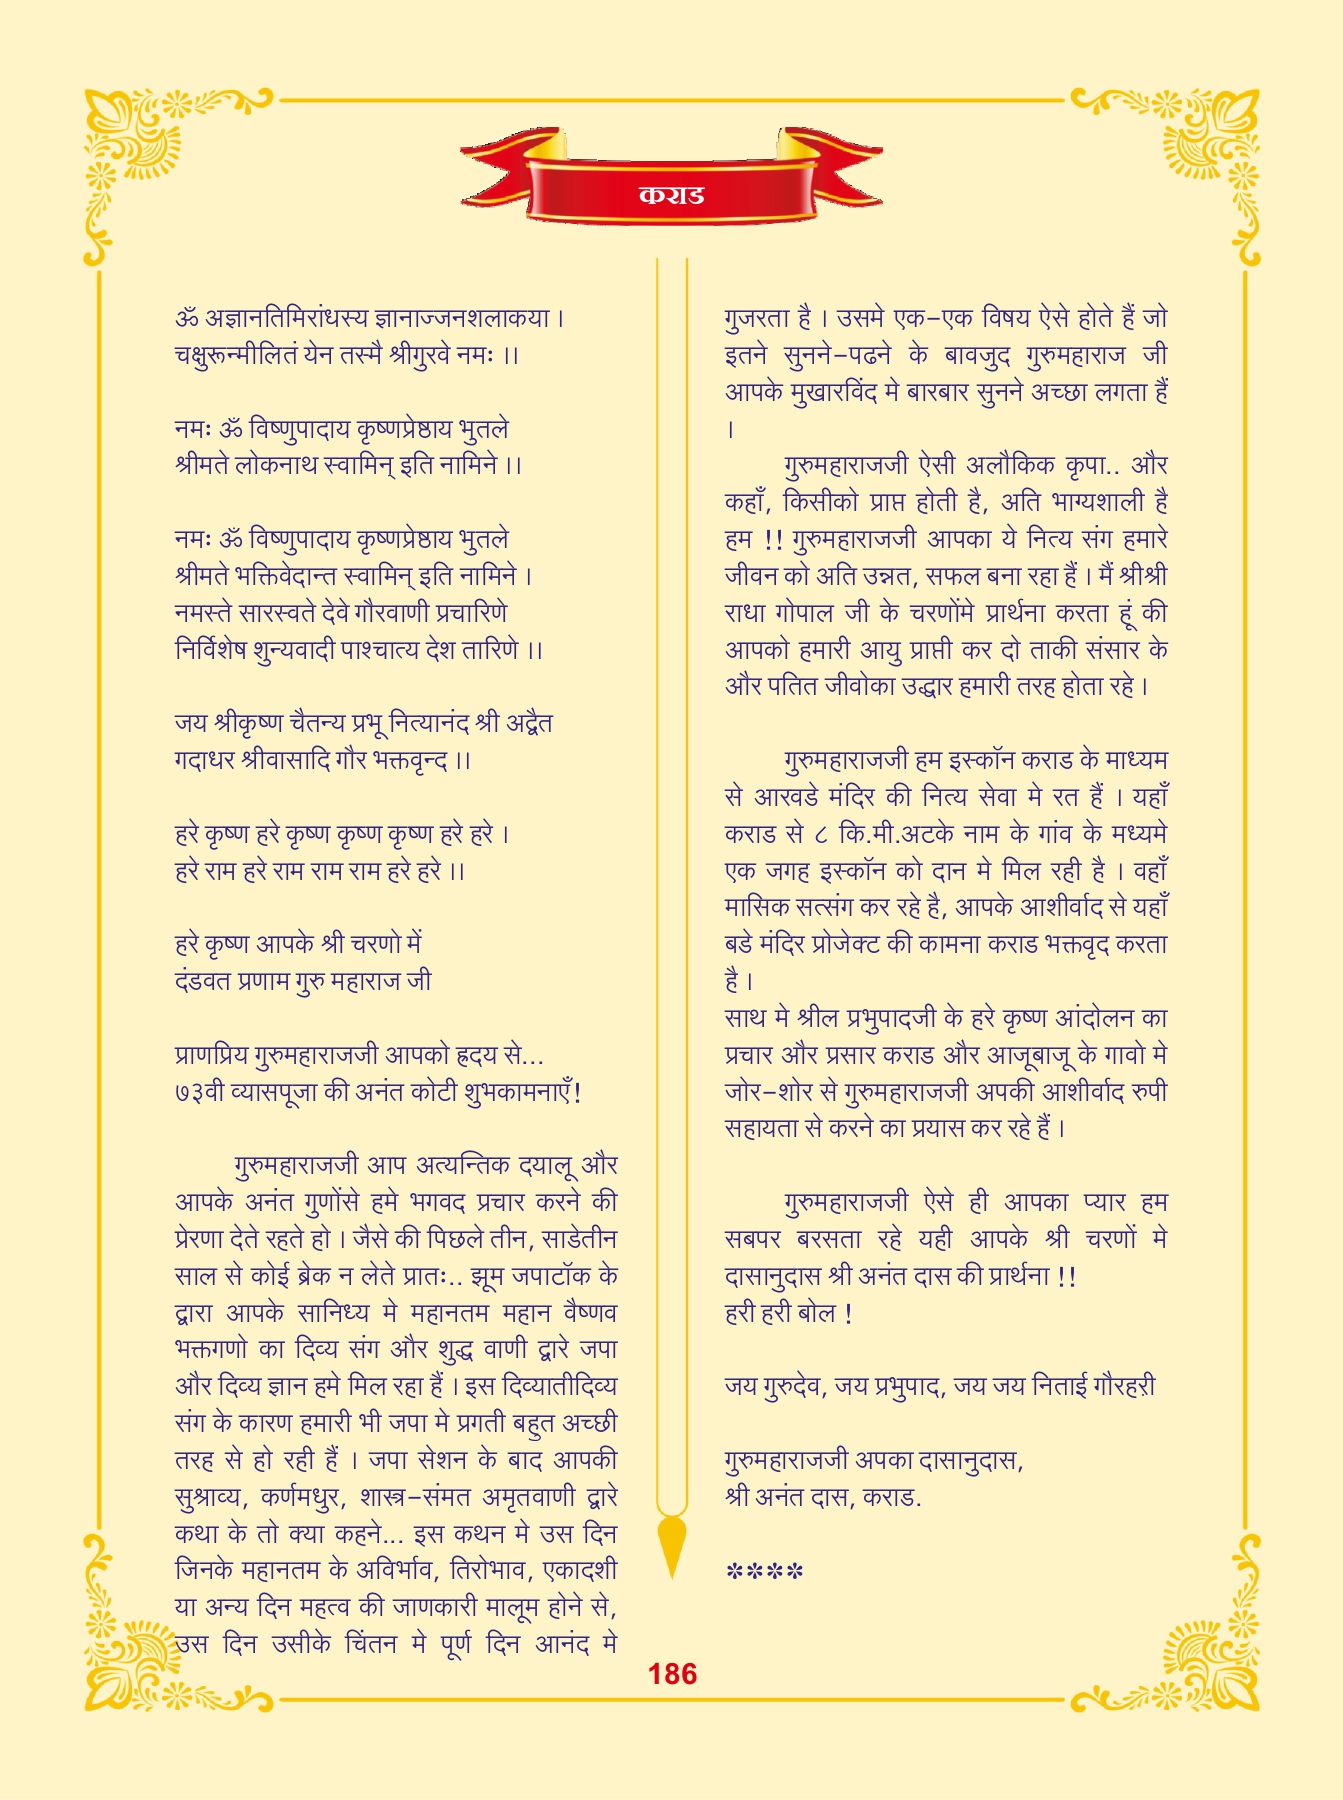 कराड
ॐ अज्ञानतिमिरांधस्य ज्ञानाज्जनशलाकया ।
चक्षुरून्मीलितं येन तस्मै श्रीगुरवे नमः ।।
नमः ॐ विष्णुपादाय कृष्णप्रेष्ठाय भुतले
श्रीमते लोकनाथ स्वामिन् इति नामिने ।।
नमः ॐ विष्णुपादाय कृष्णप्रेष्ठाय भुतले
श्रीमते भक्तिवेदान्त स्वामिन् इति नामिने ।
नमस्ते सारस्वते देवे गौरवाणी प्रचारिणे
निर्विशेष शुन्यवादी पाश्चात्य देश तारिणे ।।
जय श्रीकृष्ण चैतन्य प्रभू नित्यानंद श्री अद्वैत
गदाधर श्रीवासादि गौर भक्तवृन्द ।।
हरे कृष्ण हरे कृष्ण कृष्ण कृष्ण हरे हरे ।
हरे राम हरे राम राम राम हरे हरे ।।
हरे कृष्ण आपके श्री चरणो में
दंडवत प्रणाम गुरु महाराज जी
प्राणप्रिय गुरुमहाराजजी आपको ह्रदय से...
७३वी व्यासपूजा की अनंत कोटी शुभकामनाएँ!
गुरुमहाराजजी आप अत्यन्तिक दयालू और
आपके अनंत गुणोंसे हमे भगवद प्रचार करने की
प्रेरणा देते रहते हो । जैसे की पिछले तीन, साडेतीन
साल से कोई ब्रेक न लेते प्रातः.. झूम जपाटॉक के
द्वारा आपके सानिध्य मे महानतम महान वैष्णव
भक्तगणो का दिव्य संग और शुद्ध वाणी द्वारे जपा
और दिव्य ज्ञान हमे मिल रहा हैं । इस दिव्यातीदिव्य
संग के कारण हमारी भी जपा मे प्रगती बहुत अच्छी
तरह से हो रही हैं । जपा सेशन के बाद आपकी
सुश्राव्य, कर्णमधुर, शास्त्र-संमत अमृतवाणी द्वारे
कथा के तो क्या कहने... इस कथन मे उस दिन
जिनके महानतम के अविर्भाव, तिरोभाव, एकादशी
या अन्य दिन महत्व की जाणकारी मालूम होने से,
उस दिन उसीके चिंतन मे पूर्ण दिन आनंद मे
गुजरता है । उसमे एक-एक विषय ऐसे होते हैं जो
इतने सुनने-पढने के बावजुद गुरुमहाराज जी
आपके मुखारविंद मे बारबार सुनने अच्छा लगता हैं
।
गुरुमहाराजजी ऐसी अलौकिक कृपा.. और
कहाँ, किसीको प्राप्त होती है, अति भाग्यशाली है
हम !! गुरुमहाराजजी आपका ये नित्य संग हमारे
जीवन को अति उन्नत, सफल बना रहा हैं । मैं श्रीश्री
राधा गोपाल जी के चरणोंमे प्रार्थना करता हूं की
आपको हमारी आयु प्राप्ती कर दो ताकी संसार के
और पतित जीवोका उद्धार हमारी तरह होता रहे ।
गुरुमहाराजजी हम इस्कॉन कराड के माध्यम
से आरवडे मंदिर की नित्य सेवा मे रत हैं । यहाँ
कराड से ८ कि.मी.अटके नाम के गांव के मध्यमे
एक जगह इस्कॉन को दान मे मिल रही है । वहाँ
मासिक सत्संग कर रहे है, आपके आशीर्वाद से यहाँ
बडे मंदिर प्रोजेक्ट की कामना कराड भक्तवृद करता
है ।
साथ मे श्रील प्रभुपादजी के हरे कृष्ण आंदोलन का
प्रचार और प्रसार कराड और आजूबाजू के गावो मे
जोर-शोर से गुरुमहाराजजी अपकी आशीर्वाद रुपी
सहायता से करने का प्रयास कर रहे हैं ।
गुरुमहाराजजी ऐसे ही आपका प्यार हम
सबपर बरसता रहे यही आपके श्री चरणों मे
दासानुदास श्री अनंत दास की प्रार्थना !!
हरी हरी बोल !
जय गुरुदेव, जय प्रभुपाद, जय जय निताई गौरहऱी
गुरुमहाराजजी अपका दासानुदास,
श्री अनंत दास, कराड.
****
186